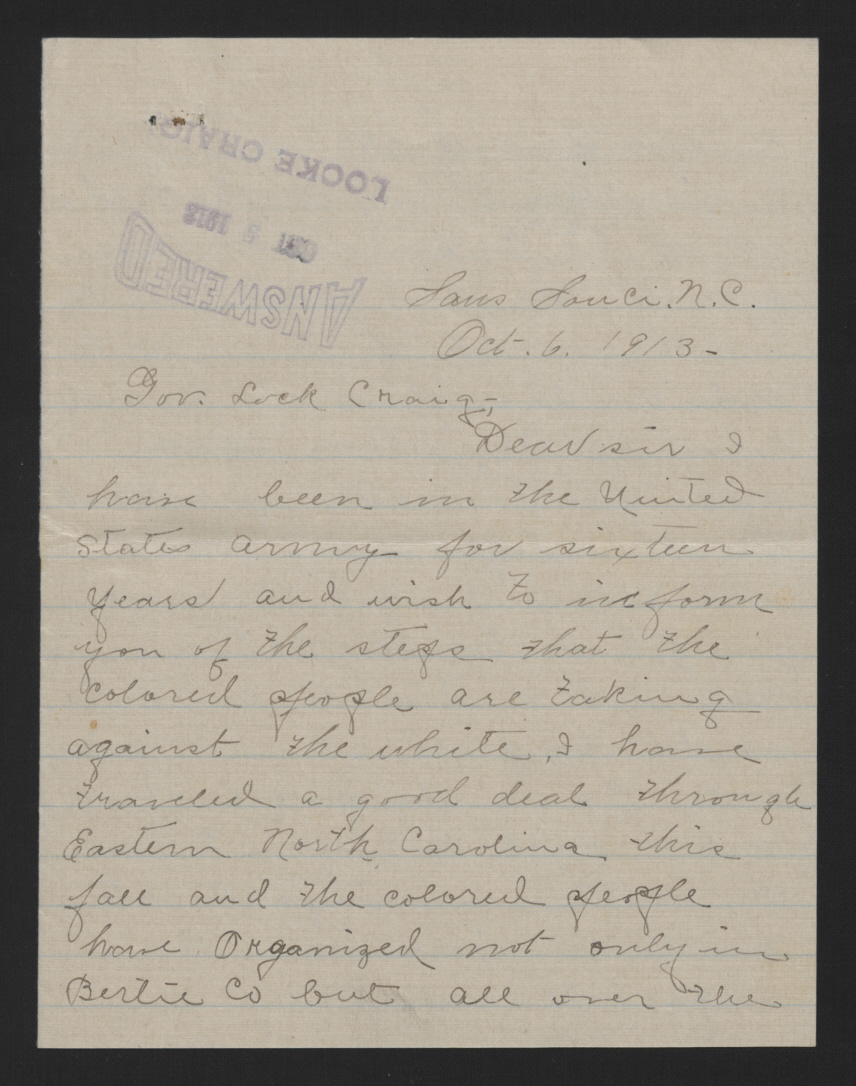 LOCKE CRAIG
OCT 9 1913
ANSWERED
Sans Souci. N.C.
Oct. 6. 1913-
Gov. Lock Craig,-
Dear sir I
have been in the United
States army for sixteen
years and wish to inform
you of the steps that the
colored people are taking
against the white, I have
traveled a good deal through
Eastern North Carolina this
fall and the colored people
have Organized not only in
Bertie Co but all over the